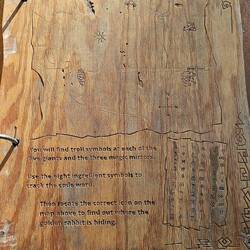 You will find troll symbols at each of the
five giants and the three magic mirrors.
Use the eight ingredient symbols to
crack the code word.
Then locate the correct icon on the
map above to find out where the
golden rabbit is hiding.